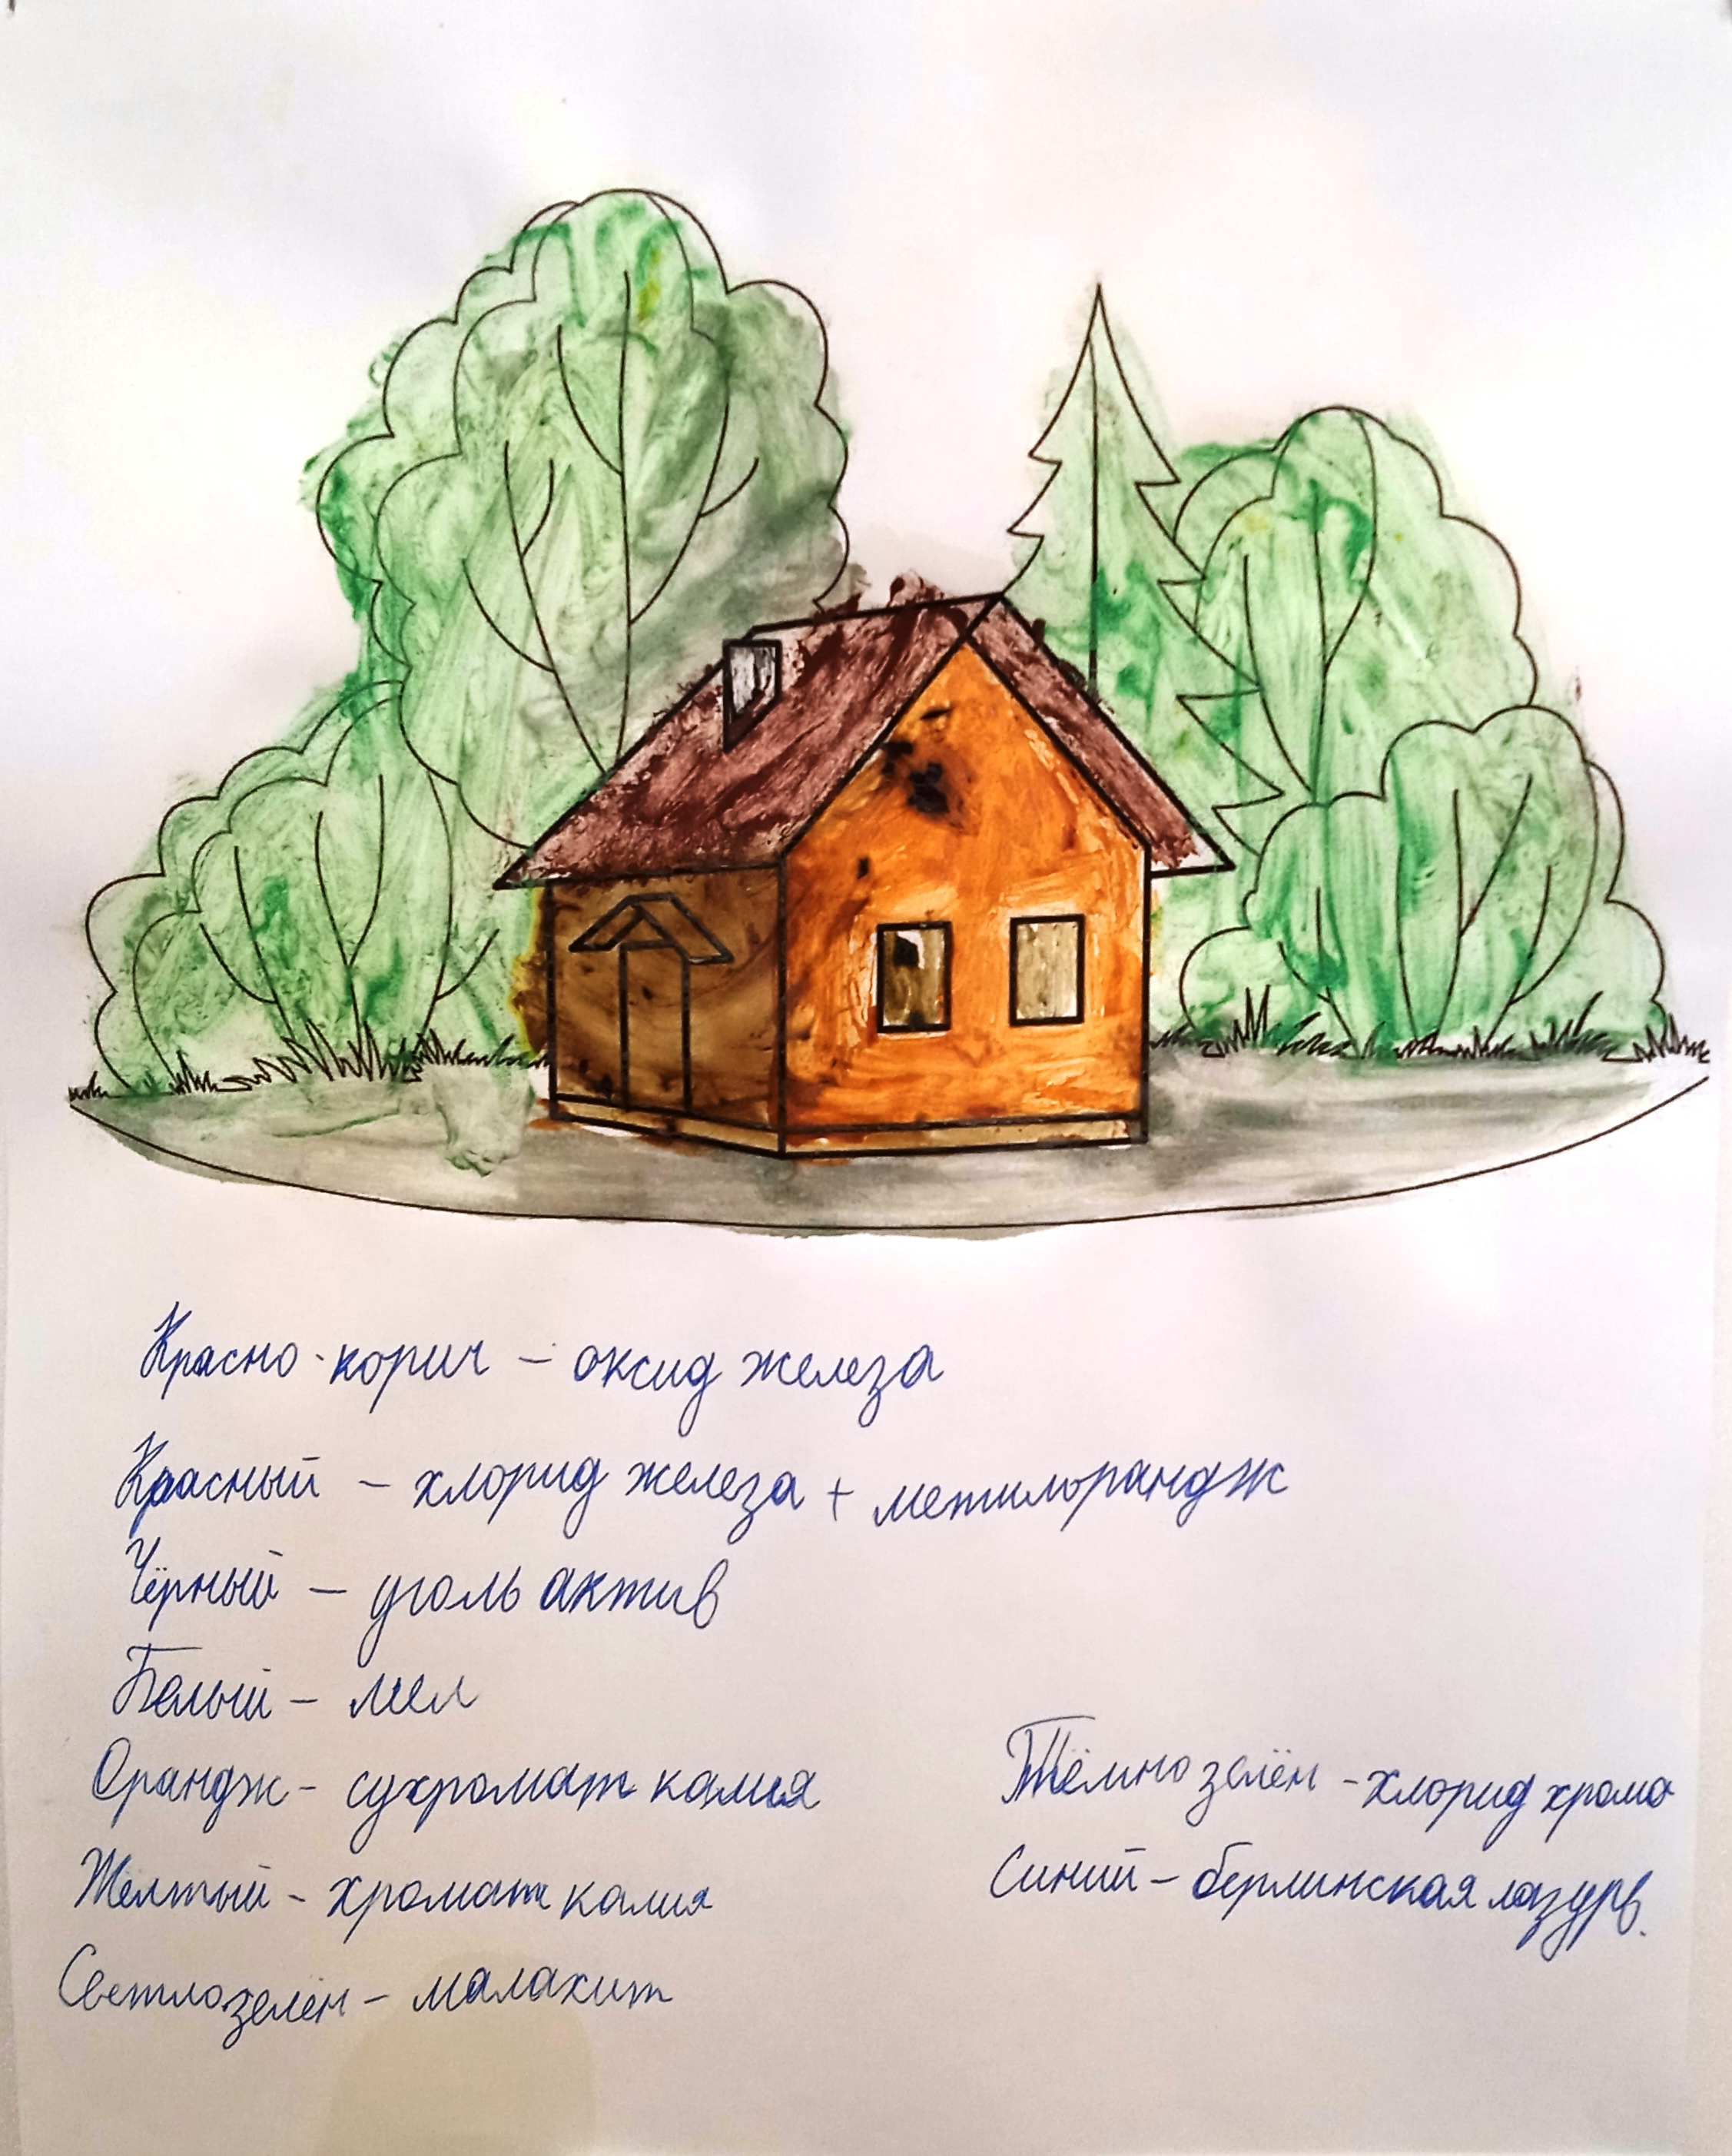 Красно-корич - оксид железа
Красный - хлорид железа + метилорандж
Чёрный - уголь актив
Белый - мел
Орандж - сухромат калия
Жёлтый - хромат калия
Светлозелён - малахит
Тёмно зелён - хлорид хрома
Синий - берлинская лазурь.